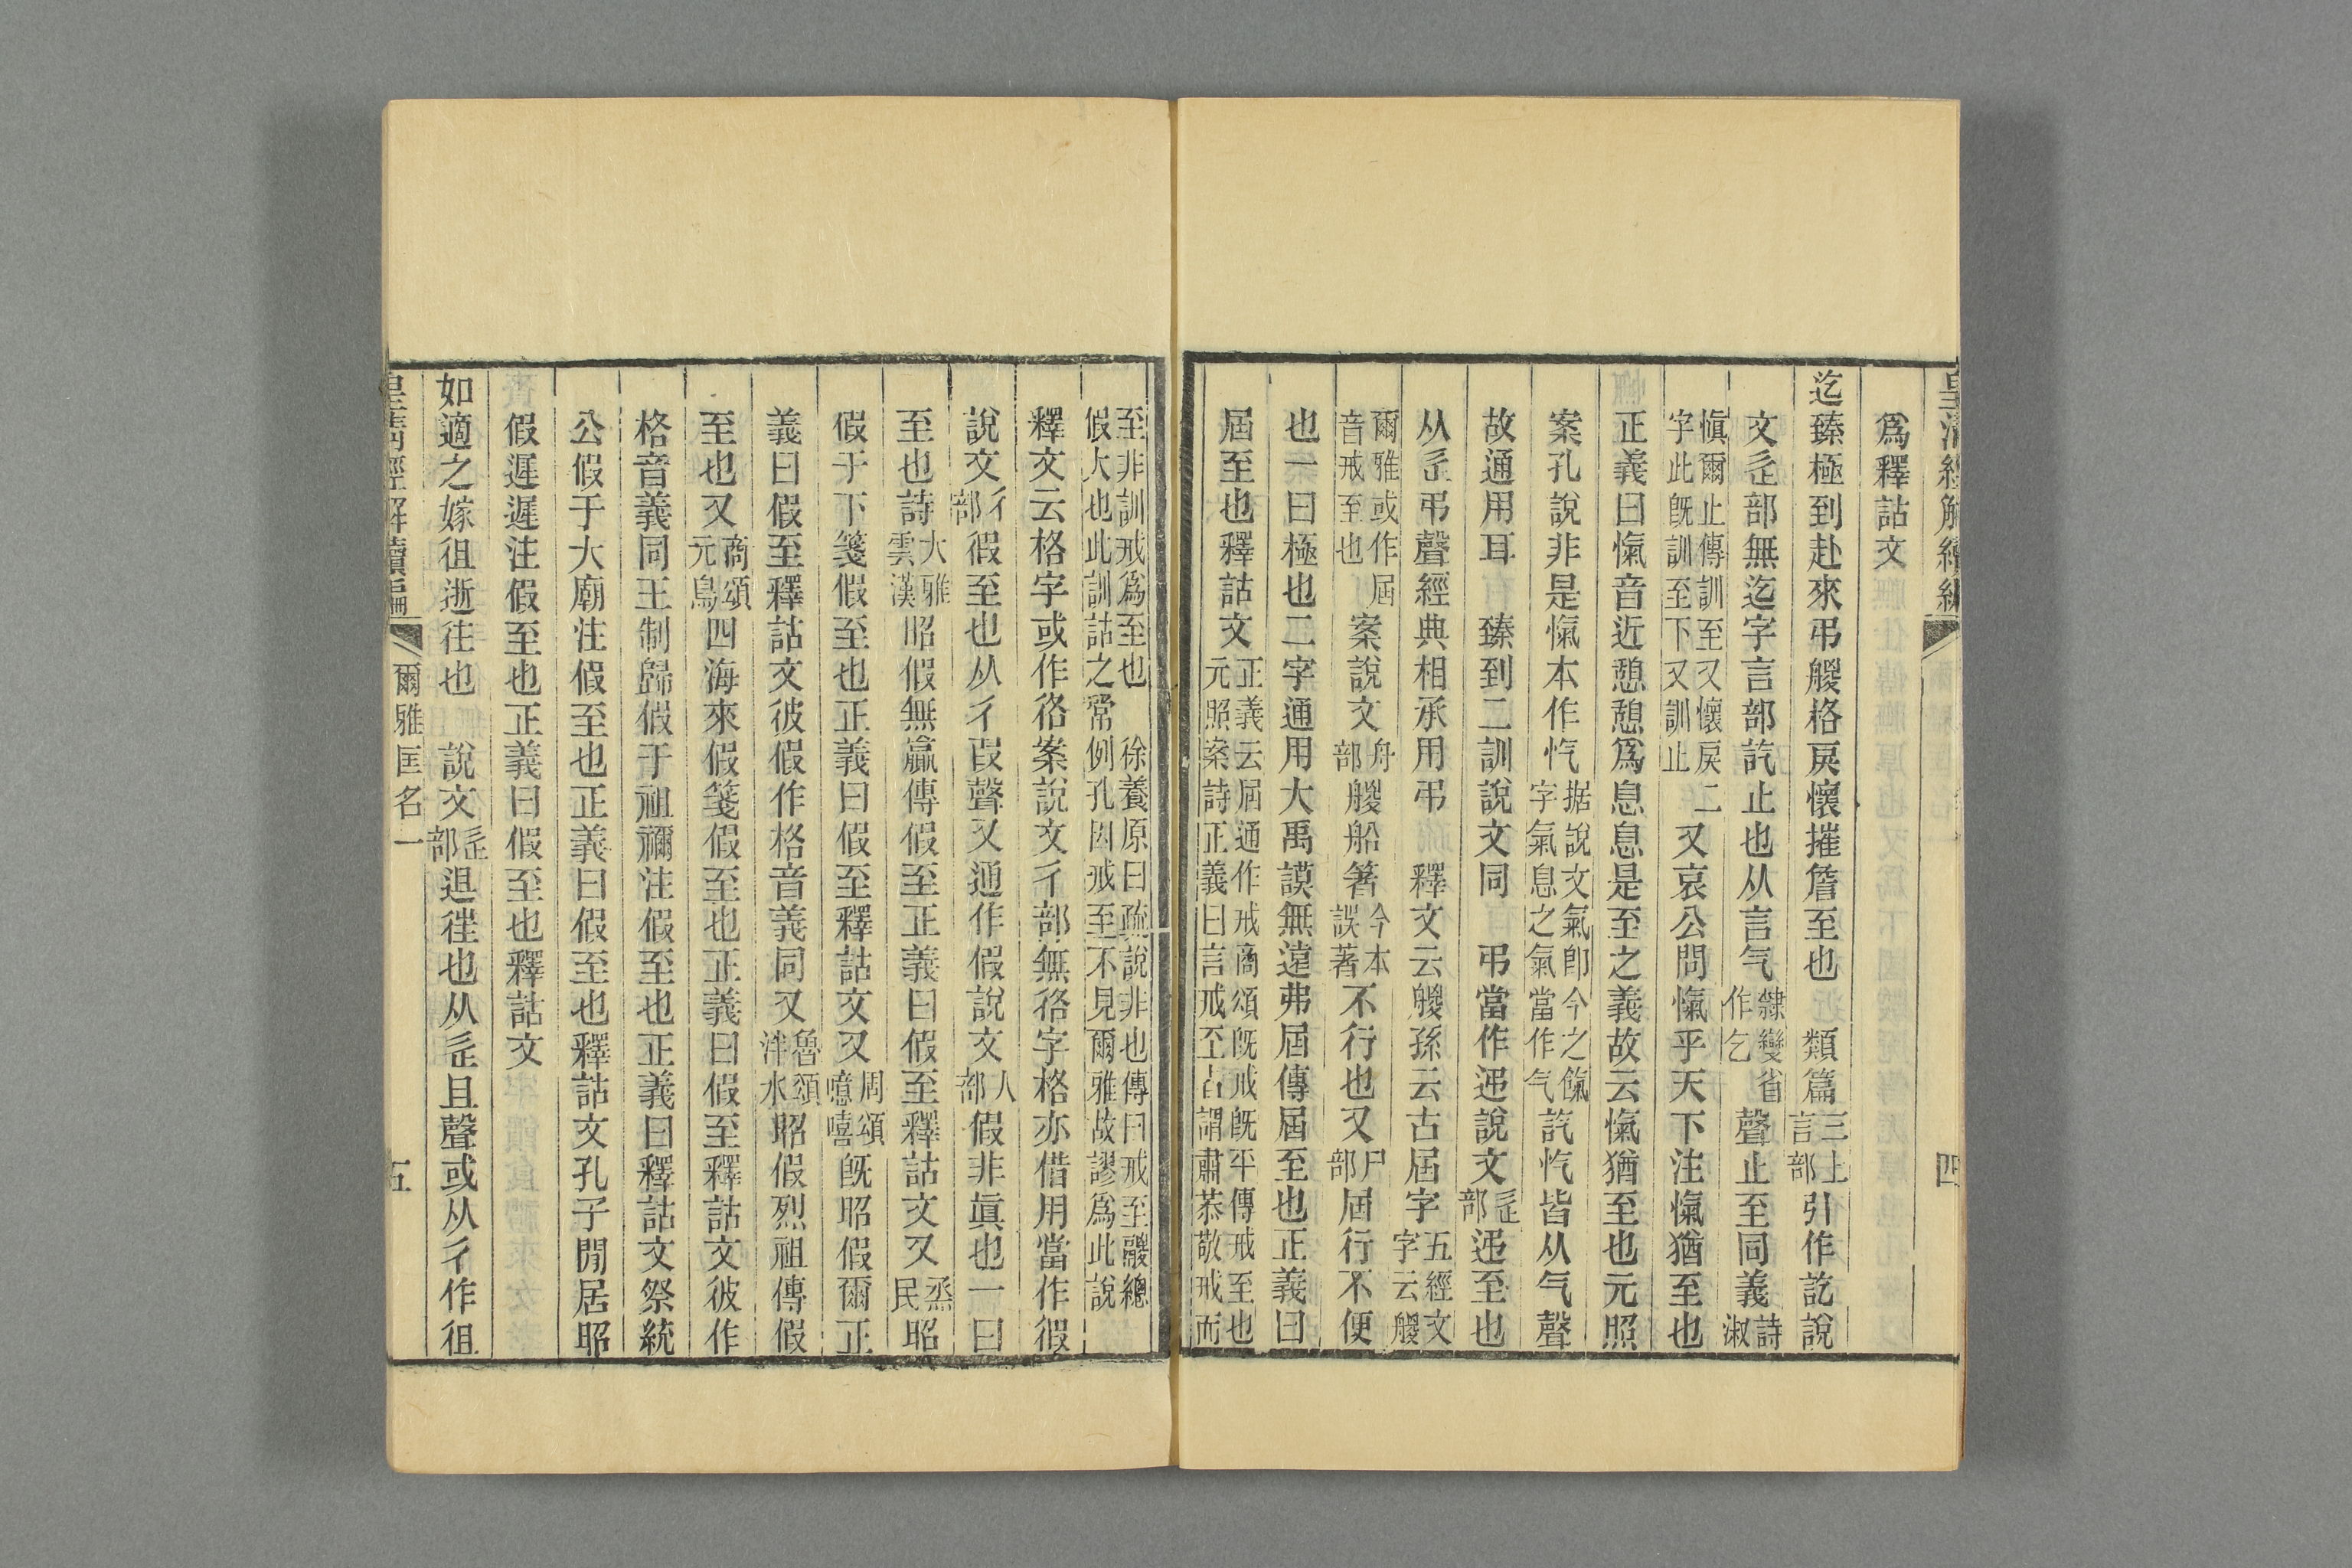 皇清經解續編 四
爲釋詁文
迄臻極到赴來弔艐格戾懷摧詹至也 類篇三上言部引作訖說
文辵部無迄字言部訖止也从言气隸變省作乞聲止至同義詩淑
愼爾止傳訓至又懷戾二字此旣訓至下又訓止又哀公問愾乎天下注愾猶至也
正義曰愾音近憩憩爲息息是至之義故云愾猶至也元照
案孔說非是愾本作忾据說文氣卽今之餼字氣息之氣當作气訖忾皆从气聲
故通用耳 臻到二訓說文同 弔當作𨑩說文辵部𨑩至也
从辵弔聲經典相承用弔 釋文云艐孫云古屆字五經文字云艐
爾雅或作屆音戒至也 案說文舟部艐船箸今本誤著不行也又尸部屆行不便
也一曰極也二字通用大禹謨無遠弗屆傳屆至也正義曰
屆至也釋詁文正義云屆通作戒商頌旣戒旣平傳戒至也元照案詩正義曰言戒至古謂肅恭敬戒而
至非訓戒爲至也 徐養原曰疏說非也傳曰戒至鬷總假大也此訓詁之常例孔因戒至不見爾雅故謬爲此說
釋文云格字或作𢓜案說文彳部無𢓜字格亦借用當作徦
說文彳部徦至也从彳叚聲又通作假說文人部假非眞也一曰
至也詩大雅雲漢昭假無贏傳假至正義曰假至釋詁文又烝民昭
假于下箋假至也正義曰假至釋詁文又周頌噫嘻旣昭假爾正
義曰假至釋詁文彼假作格音義同又魯頌泮水昭假烈祖傳假
至也又商頌元鳥四海來假箋假至也正義曰假至釋詁文彼作
格音義同王制歸假于祖禰注假至也正義曰釋詁文祭統
公假于大廟注假至也正義曰假至也釋詁文孔子閒居昭
假遲遲注假至也正義曰假至也釋詁文
如適之嫁徂逝往也 說文辵部退徃也从辵且聲或从彳作徂
皇清經解續編 爾雅匡名一 五